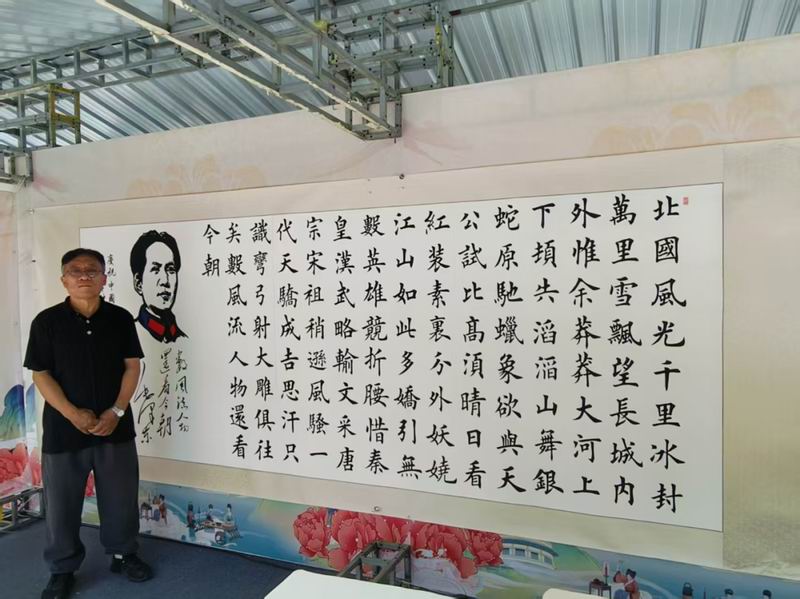 北國風光千里冰封
萬里雪飄望長城内
外惟余莽莽大河上
下頓失滔滔山舞銀
蛇原馳蠟象欲與天
公試比高須晴日看
紅装素裏分外妖嬈
江山如此多嬌引無
數英雄競折腰惜秦
皇漢武略輸文采唐
宗宋祖稍遜風騷一
代天驕成吉思汗只
識彎弓射大雕俱往
矣數風流人物還看
今朝
數風流人物
還看今朝
毛澤東
慶祝中國